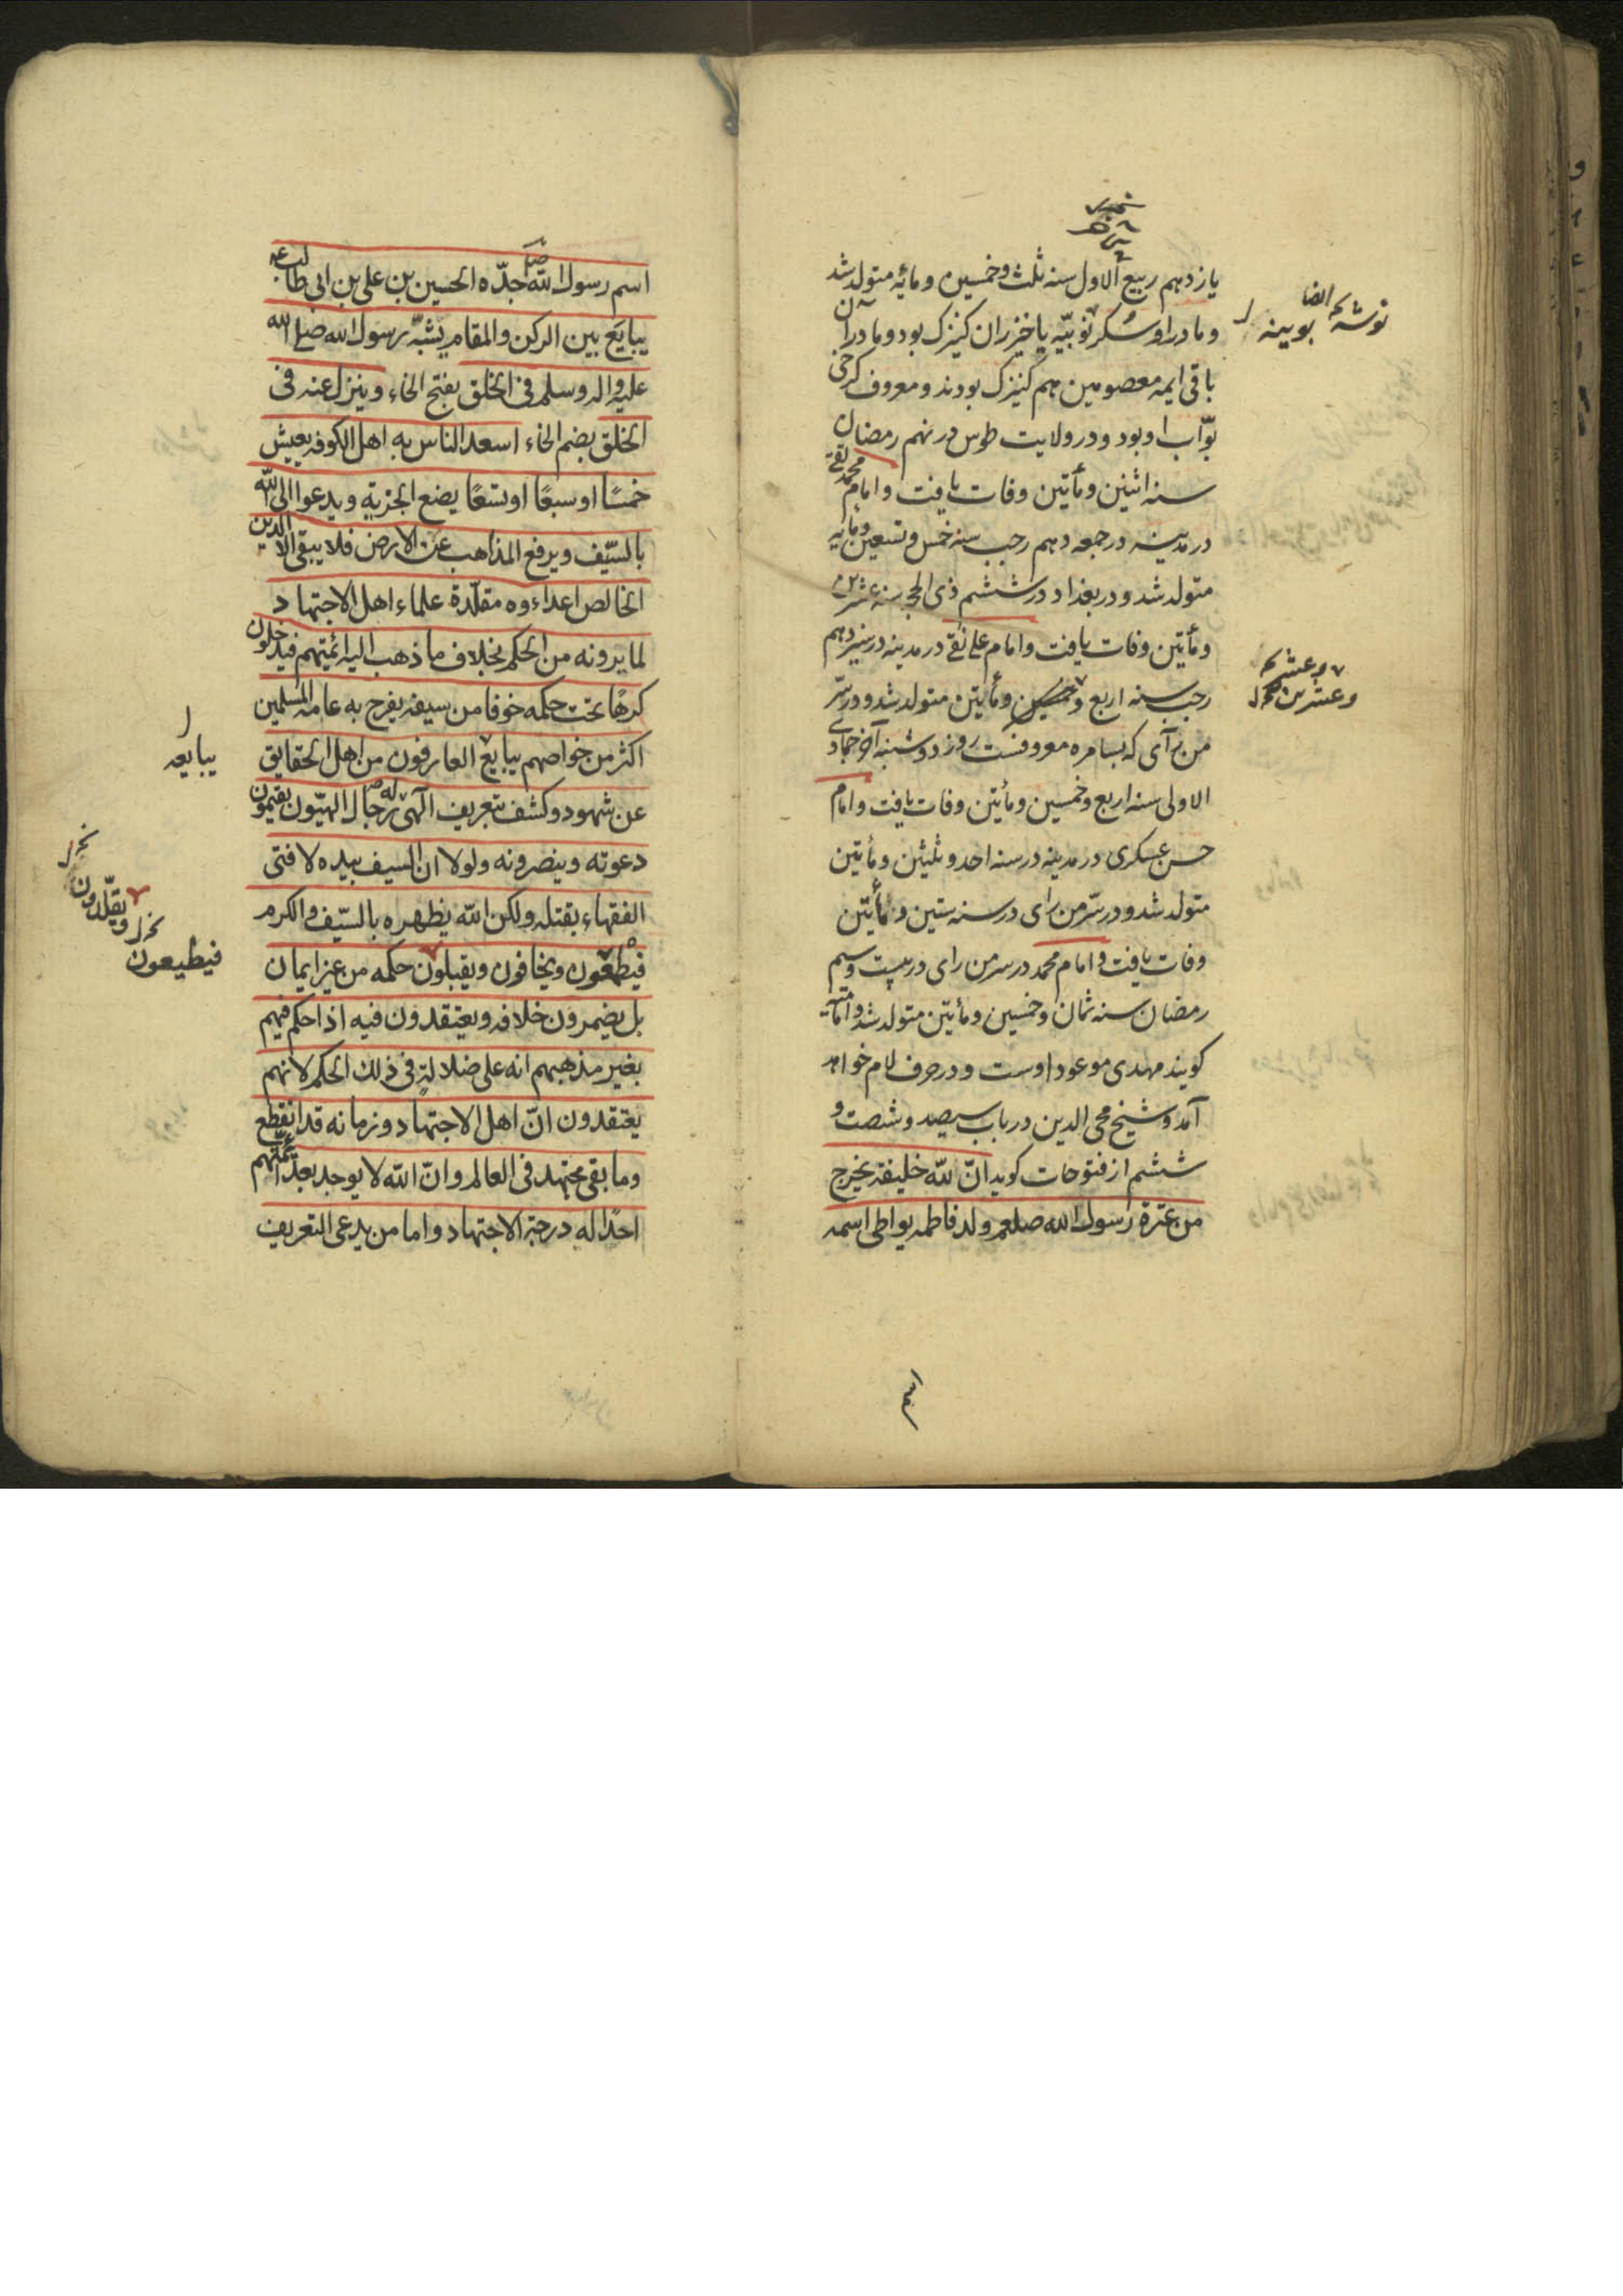 یازدهم ربیع الاول سنه ثلث وخمسین ومائه متولد شد
ومادر او سکر نوبیّه یا خیزران کنیزک بود ومادران
باقی ایمه معصومین هم کنیزک بودند ومعروف کرخی
بوّاب او بود ودر ولایت طوس در نهم رمضان
سنه اثنین ومأتین وفات یافت وامام محمد تقی
در مدینه در جمعه دهم رجب سنه خمس وتسعین ومایه
متولد شد ودر بغداد در ششم ذی الحجه سنه عشرین
ومأتین وفات یافت وامام علی نقی در مدینه در سیزدهم
رجب سنه اربع وخمسین ومأیتین متولد شد ودر سرّ
من رآی که بسامره معروفست روز دوشنبه آخر جمادی
الاولی سنه اربع وخمسین ومأیتین وفات یافت وامام
حسن عسکری در مدینه در سنه احد وثلیثین ومأیتین
متولد شد ودر سرّ من رای در سنه ستین ومأیتین
وفات یافت وامام محمد در سر من رای در بیست وسیم
رمضان سنه ثمان وخمسین ومأیتین متولد شد وامامیه
کویند مهدی موعود اوست ودر حرف لام خواهد
آمد وشیخ محی الدین در باب سیصد وشصت و
ششم از فتوحات کوید انّ للّه خلیفة یخرج
من عترة رسول الله صلعم ولد فاطمه یواطی اسمه
بوینه
وعشرین
اسم رسول اللّه جدّه الحسین بن علی بن ابی طالب
یبایَع بین الرکن والمقام یشبّه رسول الله صلی الله
علیه واله وسلم فی الخَلق بفتح الخاء وینزل عنه فی
الخلق بضم الخاء اسعد الناس به اهل الکوفه یعیش
خمسًا او سبعًا او تسعًا یضع الجزیة ویدعوا الی اللّه
بالسّیف ویرفع المذاهب عن الارض فلا یبقی الا الدین
الخالص اعداءوه مقلّدة علماء اهل الاجتهاد
لما یرونه من الحکم بخلاف ما ذهب الیه ائمتهم فیدخلون
کرهًا تحت حکمه خوفا من سیفه یفرح به عامه المسلمین
اکثر من خواصهم یبایع العارفون من اهل الحقایق
عن شهود وکشف بتعریف الٓهی له رجال الهیّون یقیمون
دعوته وینصرونه ولولا ان السیف بیده لافتی
الفقهاء بقتله ولکن اللّه یظهره بالسّیف والکرم
فیطمعون ویخافون ویقبلون حکمه من غیر ایمان
بل یضمرون خلافه ویعتقدون فیه اذا حکم فیهم
بغیر مذهبهم انه علی ضلالة فی ذلک الحکم لانهم
یعتقدون انّ اهل الاجتهاد وزمانه قد انقطع
وما بقی مجتهد فی العالم وانّ اللّه لا یوجد بعد ائمّتهم
احدًا له درجة الاجتهاد واما من یدعی التعریف
یبایعه
ویقلّدون
فیطیعون